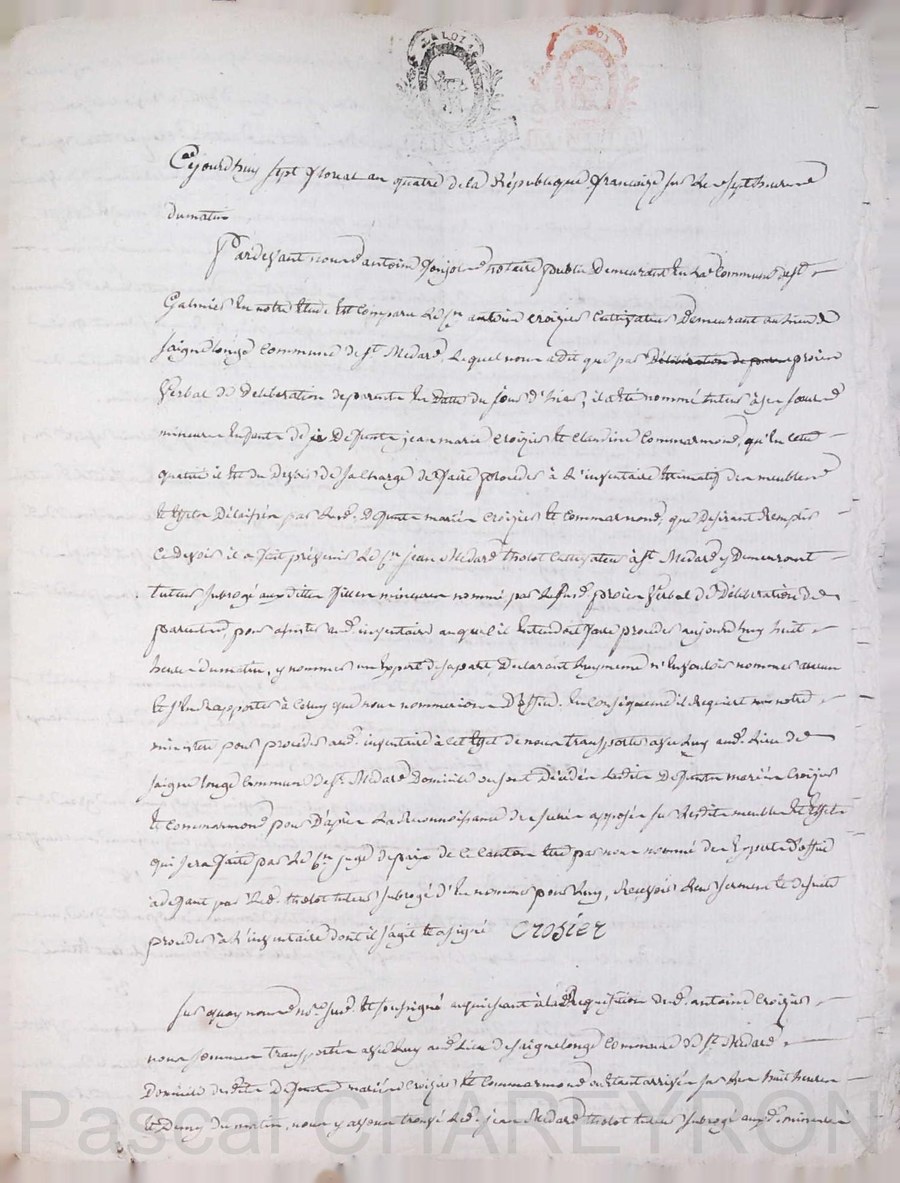 LA LOI
LA LOI
Cejourdhuy sept floreal an quatre de la République francaize sur les sept heures
du matin
Pardevant nous antoine notaire public demeurant en la commune de st
Galmier en notre etude est comparu le Cen antoine croizier cultivateur demeurant au lieu de
saignelonge commune de st Medard lequel nous a dit que par déliberation de paren procès
verbal de deliberation de parents en datte du jour d'hier, il a été nommé tuteur à ses sœurs
mineures enfants de defunts jean marie croizier et claudine commarmond, qu'en cette
qualité il est du devoir de sa charge de faire proceder à l'inventaire estimatif des meubles
et effets délaissés par lesd. defunts mariés croizier et commarmond, que desirant remplir
ce devoir il a fait prévenir le Cen jean Medard tholot cultivateur à st Medard y demeurant
tuteur subrogé aux dittes filles mineures nommé par le susd. procès verbal de déliberation de
parents, pour assister aud. inventaire auquel il entendoit faire proceder aujourdhuy huit
heures du matin, y nommer un expert de sa part, déclarant luy meme n'en vouloir nommer aucun
et s'en rapporter à celuy que nous nommerions d'office. en conséquence il requiert notre
ministere pour proceder aud. inventaire à cet effet de nous transporter avec luy aud. lieu de
saignelonge commune de st Medard domicile ou sont décédés lesdits defunts mariés croizier
et commarmond pour d'après la reconnoissance des scellés apposés sur lesdits meubles et effets
qui sera faite par le Cen juge de paix de ce canton etre par nous nommé des experts d'office
a defaut par led. tholot tuteur subrogé d'en nommer pour luy, recevoir leur serment et de suite
proceder à l'inventaire dont il s'agit et a signé crosier
sur quoy nous nre susd. et soussigné acquiesçant à la requisition dud. antoine croizier
nous sommes transportés avec luy aud. lieu de saignelonge commune de st Medard
domicile desdits defunts mariés croizier et commarmond ou etant arrivés sur les huit heures
et demy du matin, nous y avons trouvé led. jean Medard tholot tuteur subrogé auxd. mineures
Pascal CHAREYRON